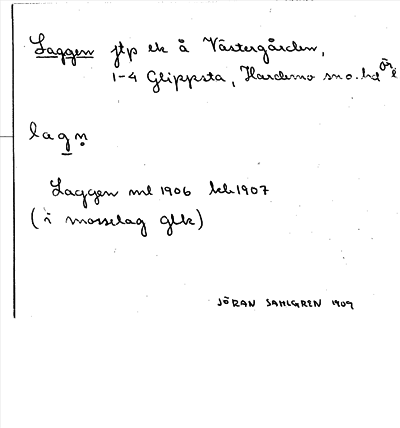 Laggen jtp ek å Västergården,
1-4 Glippsta, Hardemo sn o. hd Ör
lagn̥
Laggen ml 1906 kb 1907
(i mosselag glk)
JÖRAN SAHLGREN 1909